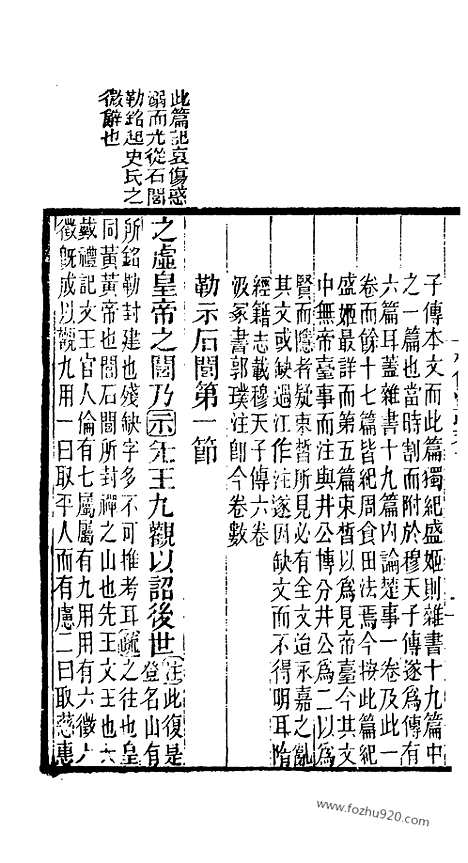 子傳本文而此篇獨紀盛姬則雜書十九篇中
之一篇也當時割而附於穆天子傳遂爲傳有
六篇耳蓋雜書十九篇內論楚事一卷及此一
卷而餘十七篇皆紀周食田法焉今按此篇紀
盛姬最詳而第五篇束皙以爲見帝臺今其文
中無帝臺事而注與井公博分井公爲二以爲
賢而隱者疑束皙所見必有全文迨永嘉之亂
其文或缺過江作注遂因缺文而不得明耳隋
經籍志載穆天子傳六卷
汲冢書郭璞注卽今卷數
勒示石閭第一節
之虛皇帝之閭乃示先王九觀以詔後世注此復是登名山有
所銘勒封建也殘缺字多不可推考耳疏之往也皇
同黃黃帝也閭石閭所封禪之山也先王文王也大
戴禮記文王官人倫有七屬屬有九用用有六徵六
徵旣成以觀九用一曰取平人而有慮二曰取慈惠
此篇記哀傷惑
溺而尤從石閭
勒銘起史氏之
微辭也
www.fozhu920.com